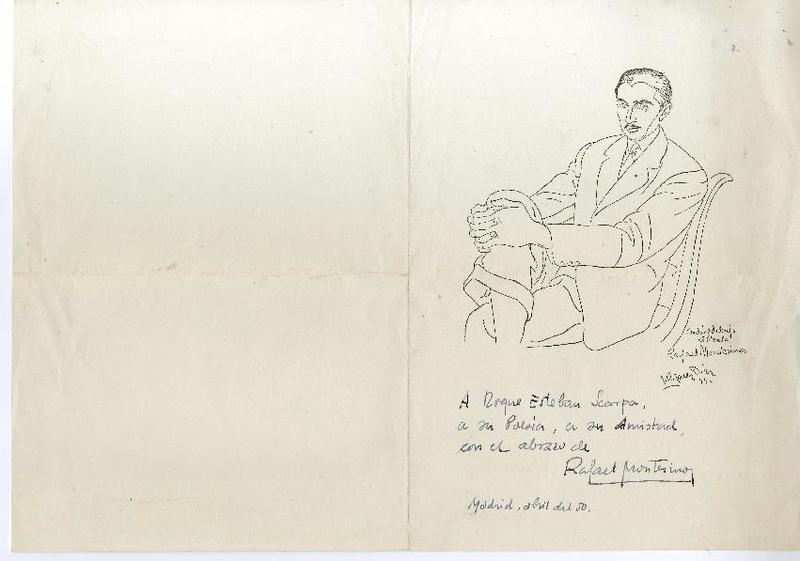 al
Rafael Montesinos
Vázquez Díaz
A Roque Esteban Scarpa,
a su Poesía, a su Amistad,
con el abrazo de
Rafael Montesinos
Madrid, abril del 50.